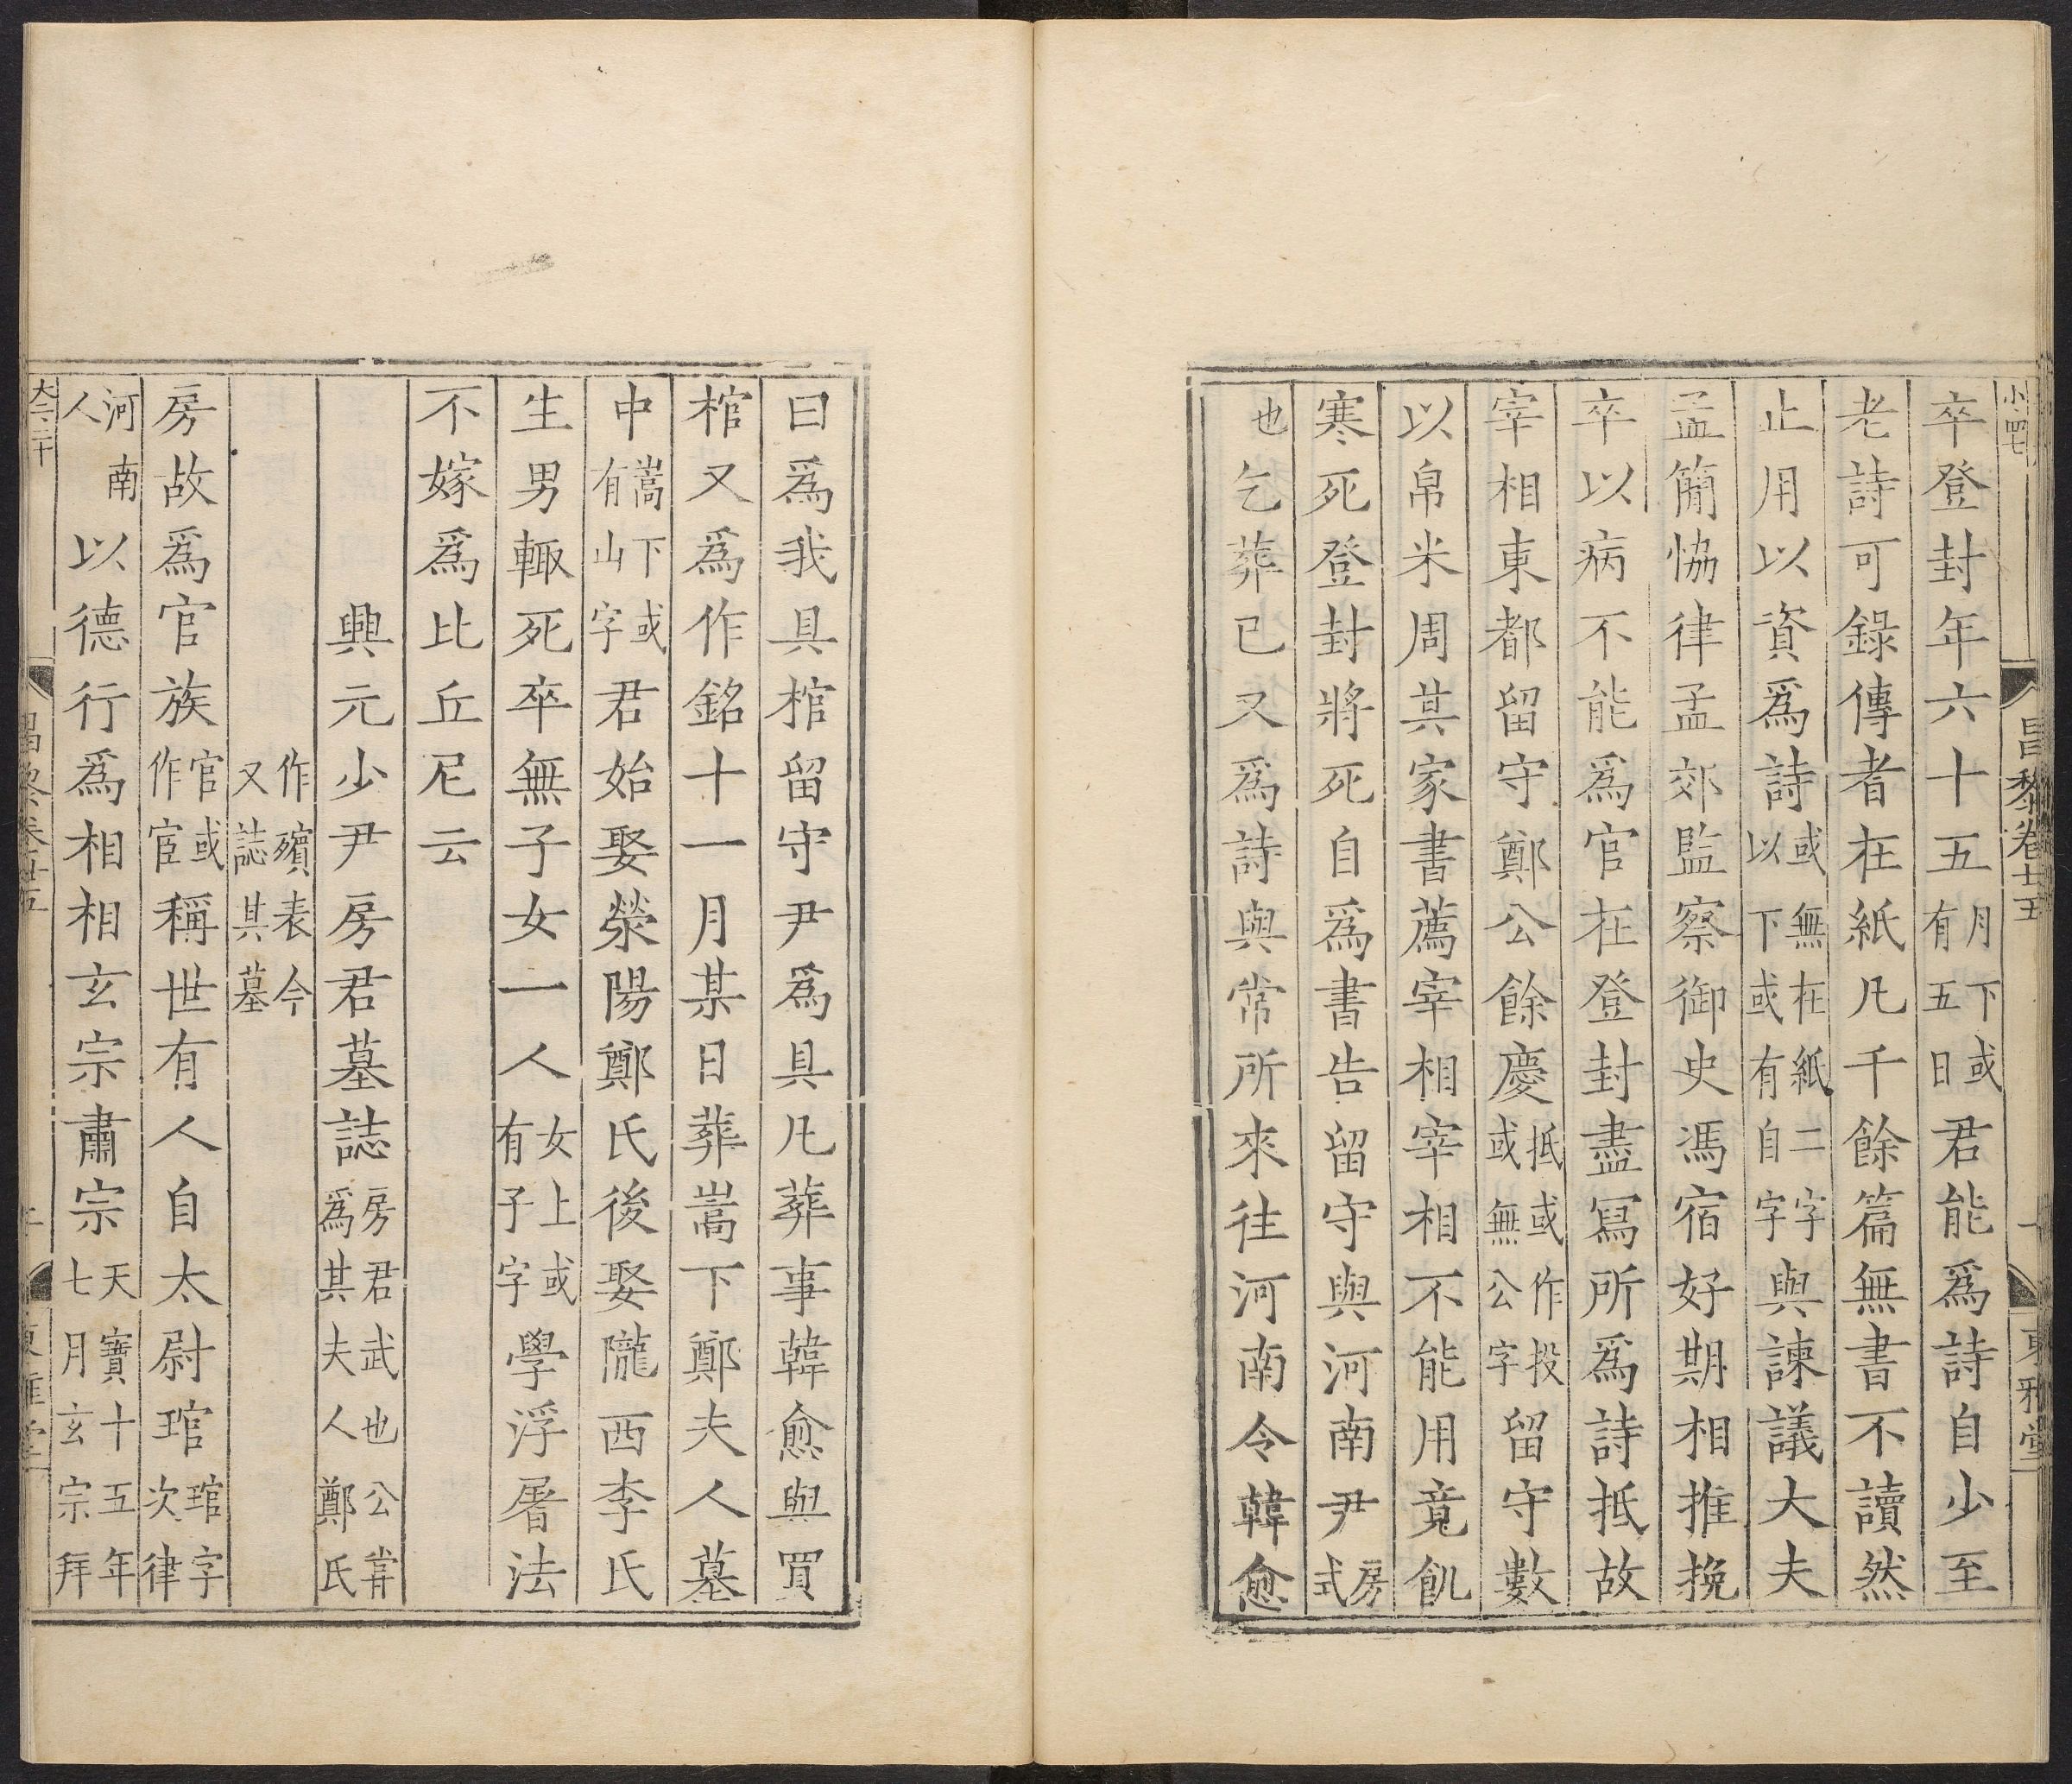 小四七 昌黎卷廿五 十 東雅堂
卒登封年六十五月下或有五日君能爲詩自少至
老詩可錄傳者在紙凡千餘篇無書不讀然
止用以資爲詩或無在紙二字以下或有自字與諫議大夫
孟簡恊律孟郊監察御史馮宿好期相推挽
卒以病不能爲官在登封盡冩所爲詩抵故
宰相東都留守鄭公餘慶抵或作投或無公字留守數
以帛米周其家書薦宰相宰相不能用竟飢
寒死登封將死自爲書告留守與河南尹房式
也乞葬已又爲詩與常所來往河南令韓愈
曰爲我具棺留守尹爲具凡葬事韓愈與買
棺又爲作銘十一月某日葬嵩下鄭夫人墓
中嵩下或有山字君始娶滎陽鄭氏後娶隴西李氏
生男輙死卒無子女一人女上或有子字學浮屠法
不嫁爲比丘尼云
興元少尹房君墓誌房君武也公甞爲其夫人鄭氏
作殯表今又誌其墓
房故爲官族官或作宦稱世有人自太尉琯琯字次律
河南人以德行爲相相玄宗肅宗天寶十五年七月玄宗拜
昌黎卷廿五 東雅堂